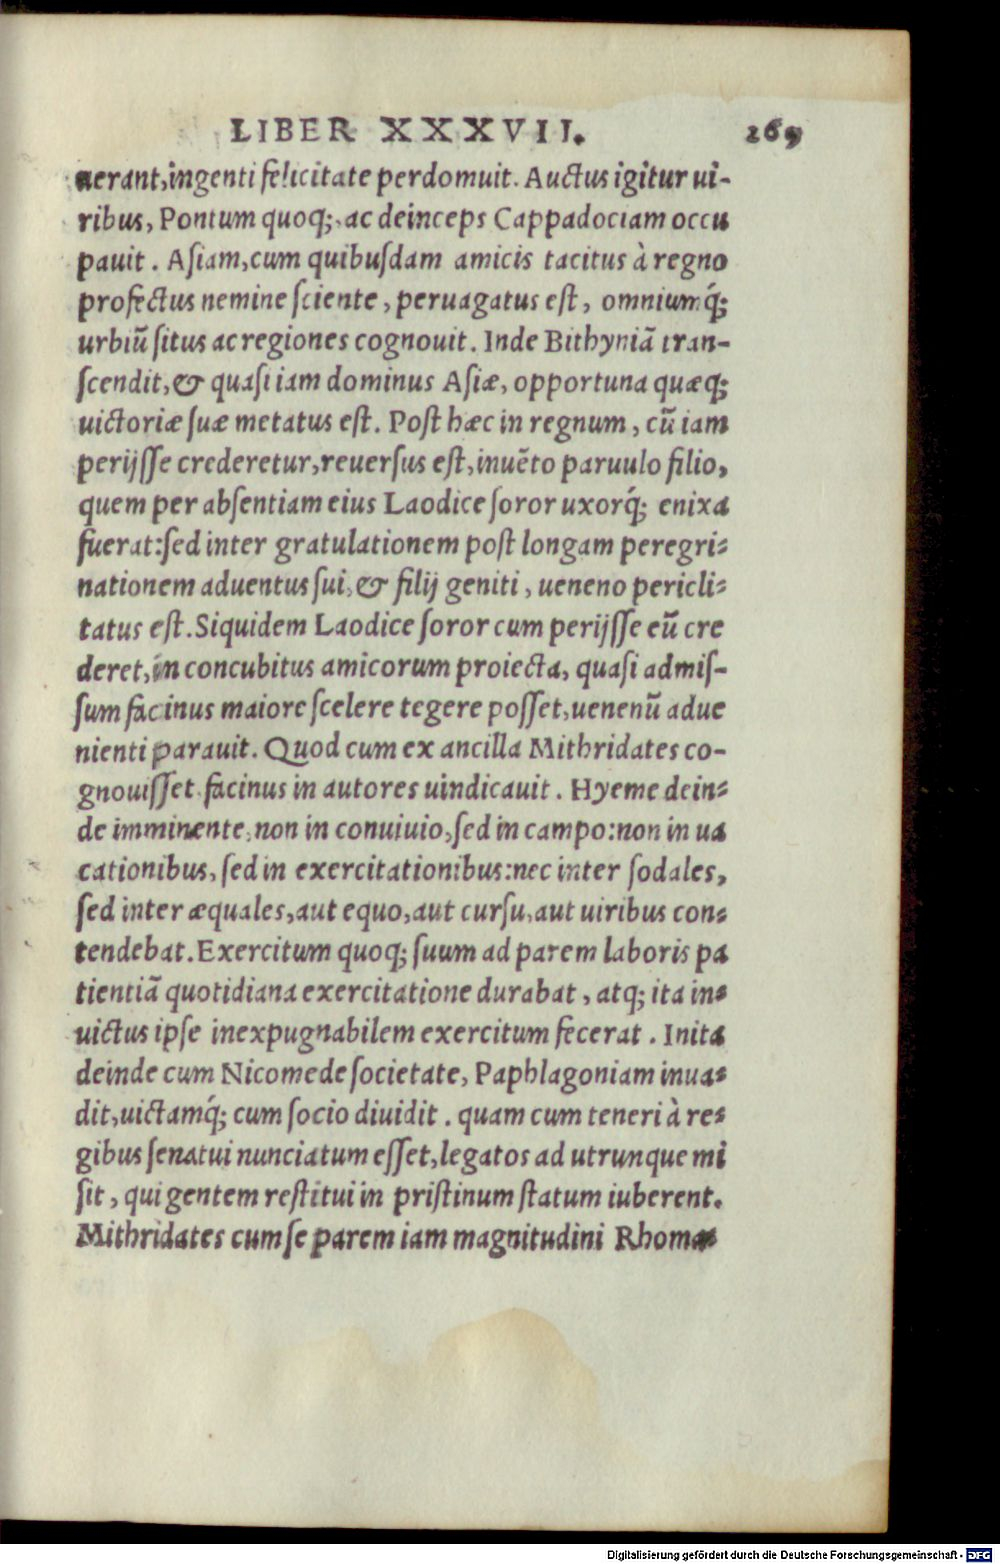 LIBER XXXVII. 269
uerant, ingenti felicitate perdomuit. Auctus igitur ui-
ribus, Pontum quoq;, ac deinceps Cappadociam occu
pauit. Asiam, cum quibusdam amicis tacitus à regno
profectus nemine sciente, peruagatus est, omniumq́;
urbiũ situs ac regiones cognouit. Inde Bithyniã tran-
scendit, & quasi iam dominus Asiæ, opportuna quæq;
uictoriæ suæ metatus est. Post hæc in regnum, cũ iam
perijsse crederetur, reuersus est, inuẽto paruulo filio,
quem per absentiam eius Laodice soror uxorq́; enixa
fuerat: sed inter gratulationem post longam peregri-
nationem aduentus sui, & filij geniti, ueneno pericli-
tatus est. Siquidem Laodice soror cum perijsse eũ cre
deret, in concubitus amicorum proiecta, quasi admis-
sum facinus maiore scelere tegere posset, uenenũ adue
nienti parauit. Quod cum ex ancilla Mithridates co-
gnouisset facinus in autores uindicauit. Hyeme dein-
de imminente, non in conuiuio, sed in campo: non in ua
cationibus, sed in exercitationibus: nec inter sodales,
sed inter æquales, aut equo, aut cursu, aut uiribus con-
tendebat. Exercitum quoq; suum ad parem laboris pa
tientiã quotidiana exercitatione durabat, atq; ita in-
uictus ipse inexpugnabilem exercitum fecerat. Inita
deinde cum Nicomede societate, Paphlagoniam inua-
dit, uictamq́; cum socio diuidit. quam cum teneri à re-
gibus senatui nunciatum esset, legatos ad utrunque mi
sit, qui gentem restitui in pristinum statum iuberent.
Mithridates cum se parem iam magnitudini Rhoma-
Digitalisierung gefördert durch die Deutsche Forschungsgemeinschaft - DFG